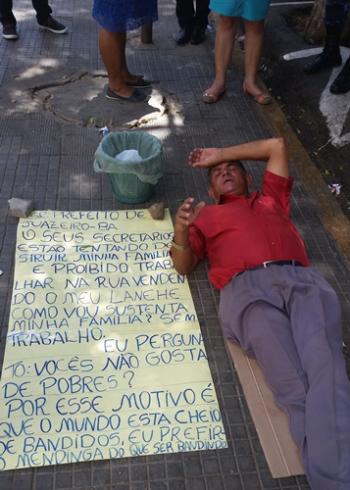 SR. PREFEITO DE
JUAZEIRO-BA
O SEUS SECRETARIOS
ESTÃO TENTANDO DE
STRUIR MINHA FAMILIA
E PROIBIDO TRABA
LHAR NA RUA VENDEN
DO O MEU LANCHE
COMO VOU SUSTENTA
MINHA FAMILIA? SEM
TRABALHO.
EU PERGUN
TO: VOCÊS NÃO GOSTA
DE POBRES?
POR ESSE MOTIVO É
QUE O MUNDO ESTA CHEIO
DE BANDIDOS, EU PREFIR
O MENDINGA DO QUE SER BANDIDO